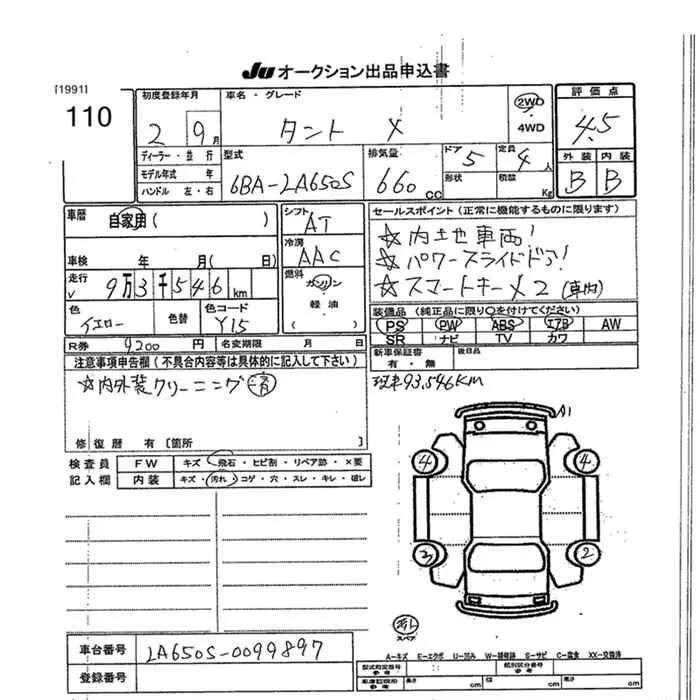 JU オークション出品申込書
[1991]
110
初度登録年月
2 9月
車名・グレード
タント X
2WD
4WD
評価点
4.5
外装 内装
B B
ディーラー・並行
モデル年式 年
ハンドル 左・右
型式
6BA-LA650S
排気量
660cc
ドア 5
形状
定員 4人
積数 Kg
車歴
自家用( )
シフト
AT
セールスポイント(正常に機能するものに限ります)
☆内土地車両!
☆パワースライドドア!
☆スマートキー×2(車内)
車検 年 月( 日)
冷房
AAC
走行
9万3千546km
燃料
ガソリン
軽油
色
イエロー
色替
色コード
Y15
装備品(純正品に限り○を付けてください)
PS PW ABS エアB AW
SR ナビ TV カワ
R券 9200円
名変期限 月 日
新車保証書
有・無
後日品
注意事項申告欄(不具合内容等は具体的に記入して下さい)
☆内外装クリーニング済
現車93,546KM
修復歴 有[箇所 ]
検査員
記入欄
FW
キズ・飛石・ヒビ割・リペア跡・×要
内装
キズ・汚れ・コゲ・穴・スレ・キレ・破レ
A1
4 4
3 2
スペア
車台番号
LA650S-0099897
登録番号
A-キズ E-エクボ U-凹み W-補修跡 S-サビ C-腐食 XX-交換済
型式指定番号
類別区分番号
長さ cm 幅 cm 高さ cm